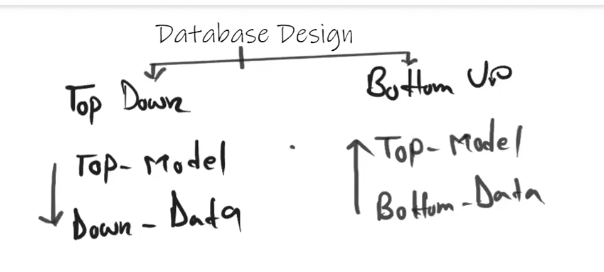 Database Design
Top Down
Top-Model
Down-Data
Bottom Up
Top-Model
Bottom-Data